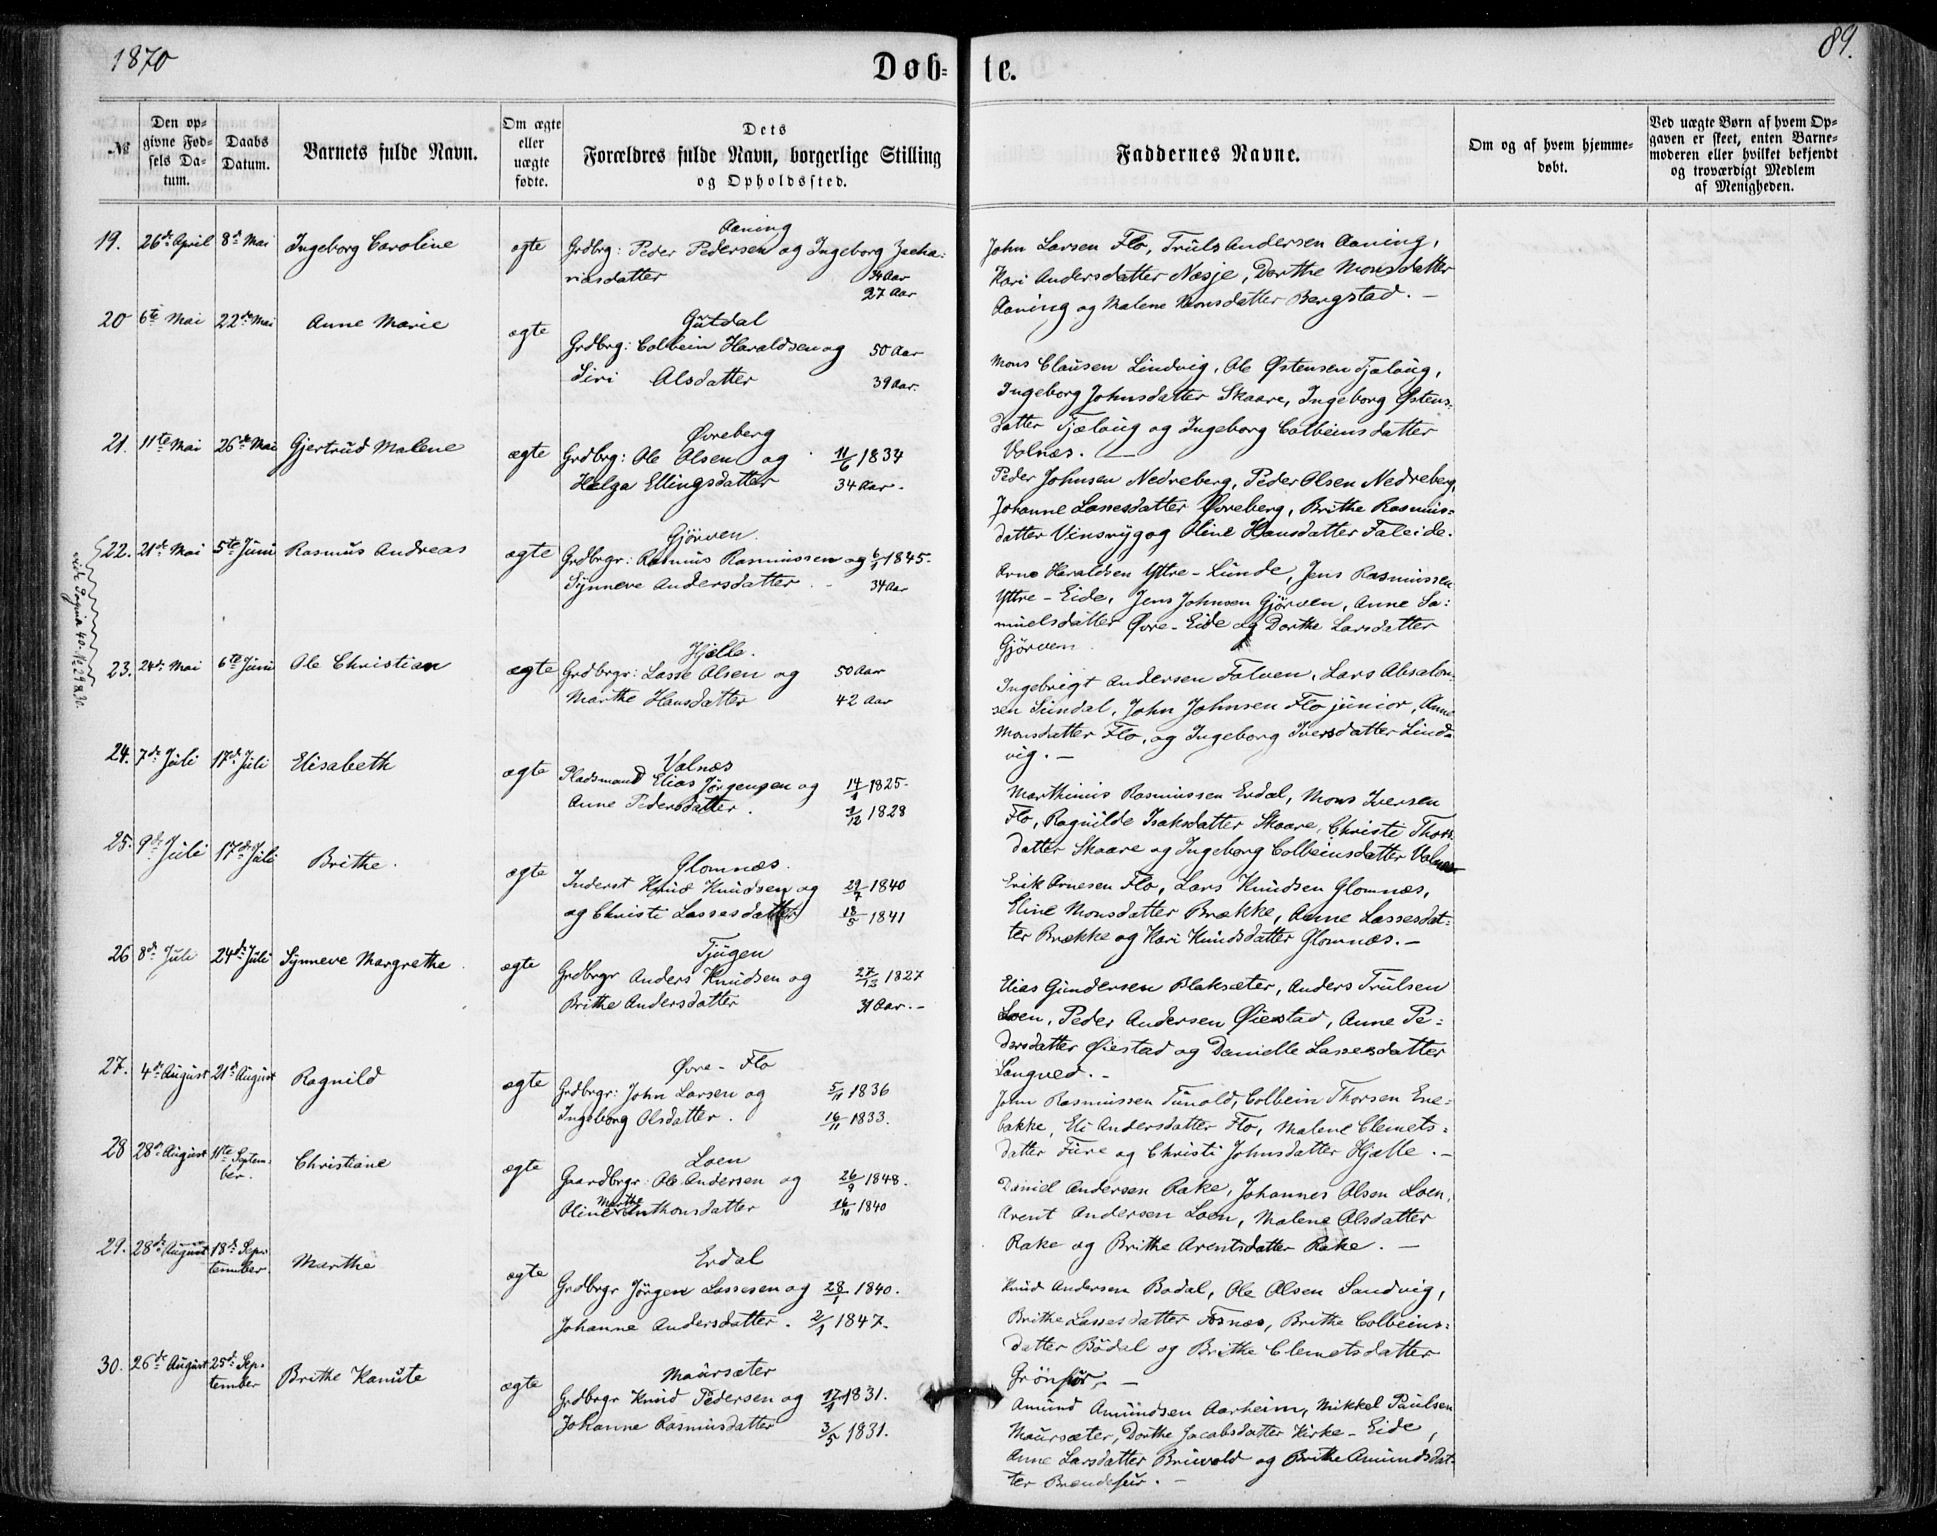 1870
89.
Døb-
te.
№
Den op-
givne Fød-
sels Da-
tum.
Daabs
Datum.
Barnets fulde Navn.
Om ægte
eller
uægte
fødte.
Dets
Forældres fulde Navn, borgerlige Stilling
og Opholdssted.
Faddernes Navne.
Om og af hvem hjemme-
døbt.
Ved uægte Børn af hvem Op-
gaven er skeet, enten Barne-
moderen eller hvilket bekjendt
og troværdigt Medlem
af Menigheden.
19. 26de April 8de Mai Ingeborg Caroline ægte
Aaning
Grdbrg: Peder Pedersen og Ingeborg Zacha:
riasdatter 34 Aar
27 Aar
John Larsen Flo, Truls Andersen Aaning,
Kari Andersdatter Nesje, Dorthe Monsdatter
Aaning og Malene Monsdatter Bergstad. —
20 6te Mai 22de Mai Anne Marie ægte
Gutdal
Grdbrg: Colbein Haraldsen og 50 Aar
Siri Olsdatter 39 Aar.
Mons Clausen Lindvig, Ole Østensen Tjelaug,
Ingeborg Johnsdatter Skaare, Ingeborg Østens-
datter Tjælaug og Ingeborg Colbeinsdatter
Valnæs. —
21. 11te Mai 26de Mai Gjertrud Malene ægte
Øvreberg
Grdbrg: Ole Olsen og 11/6 1834
Helga Ellingsdatter 34 Aar.
Peder Johnsen Nedreberg, Peder Olsen Nedreberg,
Johanne Lassesdatter Øvreberg, Brithe Rasmus-
datter Vinsryg og Oline Hansdatter Faleide.
22. 21de Mai 5te Juni Rasmus Andreas ægte
Gjörven.
Grdbrgr: Rasmus Rasmussen og 6/1 1845.
Synneve Andersdatter 34 Aar
vide Pagina 40. No 29 & 30.
Arne Haraldsen Yttre-Lunde, Jens Rasmussen
Yttre-Eide, Jens Johnsen Gjörven, Anne Sa:
muelsdatter Øvre-Eide og Dorthe Larsdatter
Gjörven.
23. 24de Mai 6te Juni Ole Christian ægte
Hjelle.
Grdbrgr: Lasse Olsen og 50 Aar
Marthe Hansdatter 42 Aar
Ingebrigt Andersen Folven, Lars Absalon-
sen Sundal, John Johnsen Flo junior, Anne
Monsdatter Flo, og Ingeborg Iversdatter Lind-
vig. —
24. 7de Juli 17de Juli Elisabeth ægte
Valnæs
Pladsmand Elias Jörgensen og 14/1 1825.
Anne Pedersdatter. 2/12 1828
Marthinus Rasmussen Erdal, Mons Iversen
Flo, Ragnilde Isaksdatter Skaare, Christi Thors
datter Skaare og Ingeborg Colbeinsdatter Valnæs
25. 9de Juli 17de Juli Brithe. ægte
Glomnæs.
Inderst Knud Knudsen og 29/7 1840
og Christi Lassesdatter 18/5 1841
Erik Arnesen Flo, Lars Knudsen Glomnæs,
Eline Monsdatter Brække, Anne Lassesdat-
ter Brække og Kari Knudsdatter Glomnæs. —
26 8de Juli 24de Juli Synneve Margrethe. ægte
Tjugen
Grdbrgr Anders Knudsen og 27/12 1827
Brithe Andersdatter 31 Aar. –
Elias Gundersen Blaksæter, Anders Trulsen
Loen, Peder Andersen Øiestad, Anne Pe-
dersdatter Øiestad og Danielle Lassesdatter
Langved. –
27. 4de August 21de August Ragnild ægte
Øvre-Flo
Grdbrgr: John Larsen og 5/11 1836
Ingeborg Olsdatter. 16/11 1833.
John Rasmussen Tunold, Colbein Thorsen Ene-
bakke, Eli Andersdatter Flo, Malene Clemets-
datter Fure og Christi Johnsdatter Hjelle. —
28 28de August 11te Septem-
ber. Christiane ægte
Loen
Gaardbrgr: Ole Andersen og 26/9 1848.
Marthe
Oline Anthonsdatter 16/10 1840
Daniel Andersen Rake, Johannes Olsen Loen,
Arent Andersen Loen, Malene Olsdatter
Rake og Brithe Arentsdatter Rake. —
29. 28de August 18de Sep-
tember. Marthe ægte
Erdal
Grdbrgr Jörgen Lassesen og 28/1 1840.
Johanne Andersdatter. 2/1 1847.
Knud Andersen Bødal, Ole Olsen Sandvig,
Brithe Lassesdatter Fosnæs, Brithe Colbeins-
datter Bödal og Brithe Clemetsdatter
Grönfur. —
30. 26de August 25de Sep-
tember Brithe Kanute ægte
Maursæter
Grdbrgr Knud Pedersen og 17/1 1831.
Johanne Rasmusdatter 3/5 1831.
Amund Amundsen Aarheim, Mikkel Paulsen
Maursæter, Dorthe Jacobsdatter Kirke-Eide,
Anne Larsdatter Bruvold og Brithe Amundsdat-
ter Brendefur. —